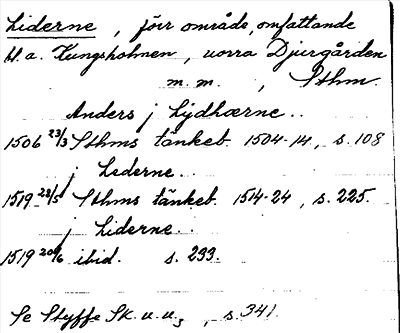 Liderne, förr område, omfattande
bl.a. Kungsholmen, norra Djurgården
m.m., Sthm.
Anders j Lydhærne..
1506 23/3 Sthms tänkeb. 1504-14, s. 108
j Lederne..
1519 23/5 Sthms tänkeb. 1514-24, s. 225.
j Liderne..
1519 20/6 ibid. s. 233.
Se Styffe Sk. u. u., s. 341